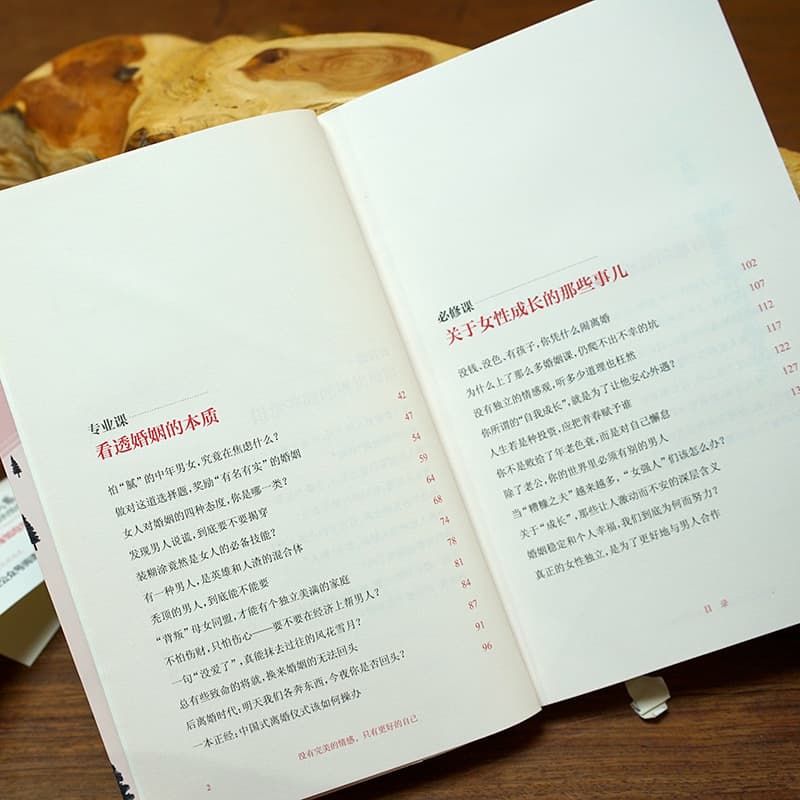 专业课
看透婚姻的本质
怕“腻”的中年男女,究竟在焦虑什么? 42
做对这道选择题,奖励“有名有实”的婚姻 47
女人对婚姻的四种态度,你是哪一类? 54
发现男人说谎,到底要不要揭穿 59
装糊涂竟然是女人的必备技能? 64
有一种男人,是英雄和人渣的混合体 68
秃顶的男人,到底能不能要 74
“背叛”母女同盟,才能有个独立美满的家庭 78
不怕伤财,只怕伤心——要不要在经济上帮男人? 81
一句“没爱了”,真能抹去过往的风花雪月? 84
总有些致命的将就,换来婚姻的无法回头 87
后离婚时代:明天我们各奔东西,今夜你是否回头? 91
一本正经:中国式离婚仪式该如何操办 96
2
没有完美的情感,只有更好的自己
必修课
关于女性成长的那些事儿
没钱、没色、有孩子,你凭什么闹离婚 102
为什么上了那么多婚姻课,仍爬不出不幸的坑 107
没有独立的情感观,听多少道理也枉然 112
你所谓的“自我成长”,就是为了让他安心外遇? 117
人生若是种投资,应把青春赋予谁 122
你不是败给了年老色衰,而是对自己懈怠 127
除了老公,你的世界里必须有别的男人
当“糟糠之夫”越来越多,“女强人”们该怎么办?
关于“成长”,那些让人激动而不安的深层含义
婚姻稳定和个人幸福,我们到底为何而努力?
真正的女性独立,是为了更好地与男人合作
目 录